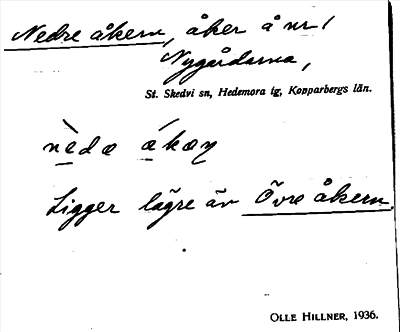 Nedre åkern, åker å nr 1
Nygårdarna,
St. Skedvi sn, Hedemora tg, Kopparbergs län.
nèdæ ákæṇ
Ligger lägre än Övre åkern.
OLLE HILLNER, 1936.